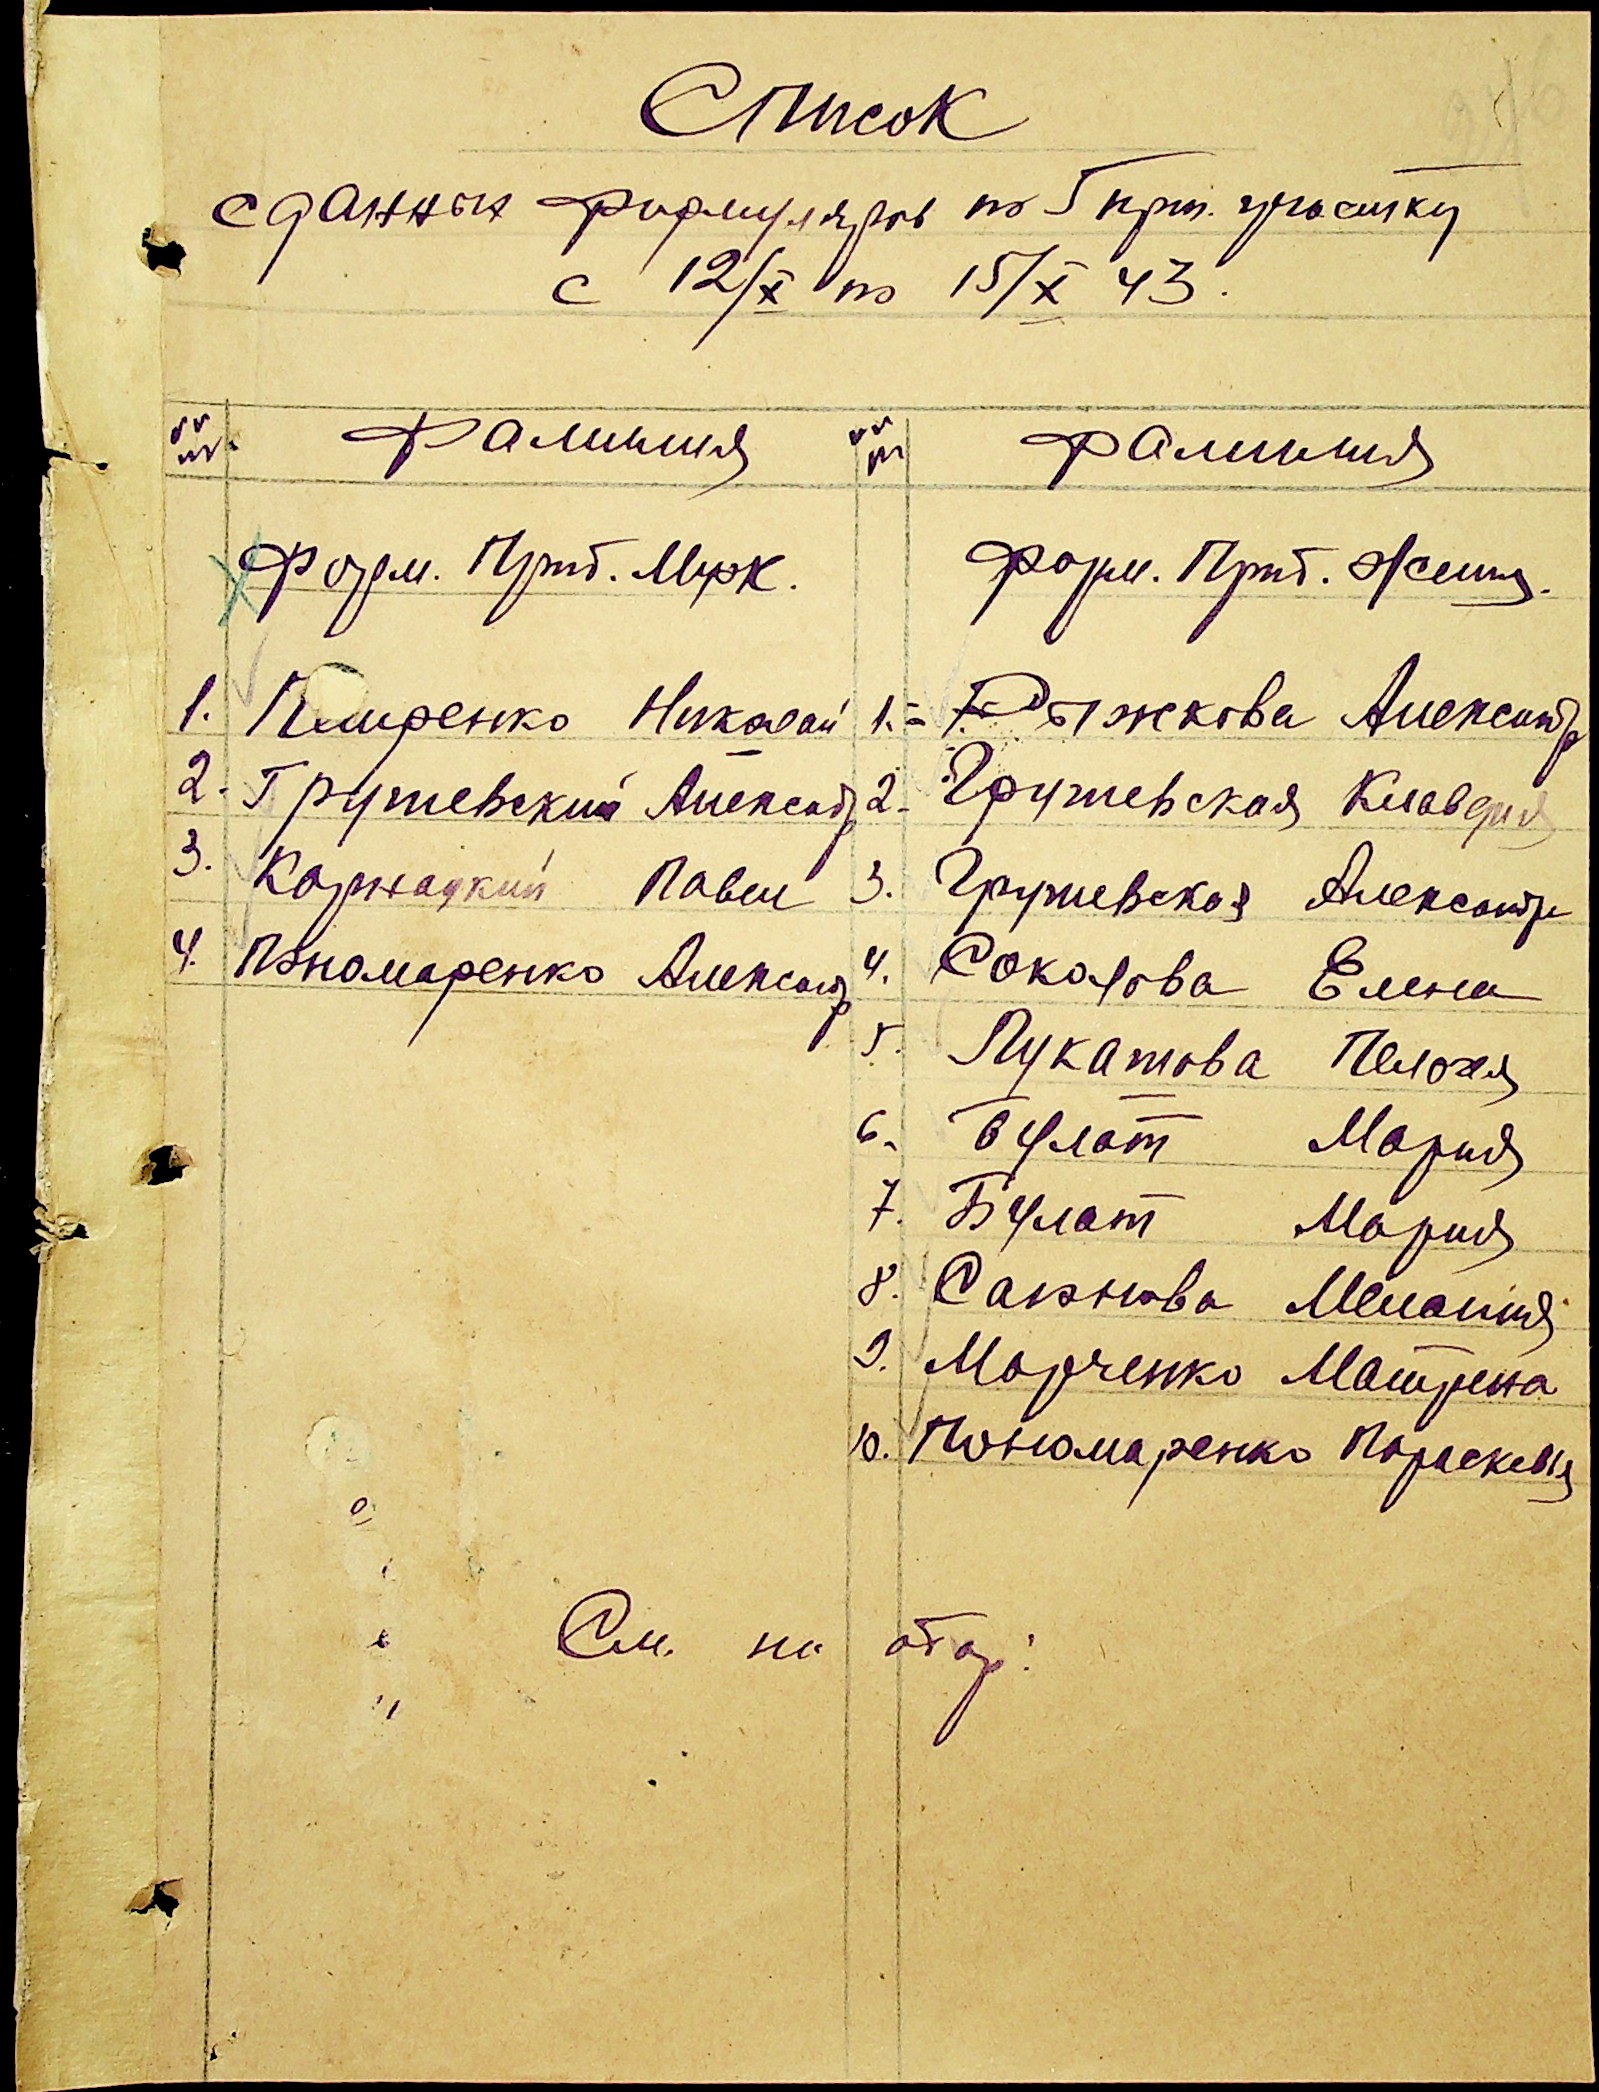 Список
сданных формуляров по 5 прт. участку
с 12/X по 15/X 43.
№№ пп Фамилия №№ пп Фамилия
Форм. Приб. Муж. Форм. Приб. Женщ.
1. Николай 1. Рыжкова Александр
2. Грушевский Александр 2. Грушевская Клавдия
3. Павел 3. Грушевская Александр
4. Пономаренко Александр 4. Соколова Елена
5. Лукашова Пелогея
6. Булат Мария
7. Булат Мария
8. Мелания
9. Марченко Матрена
10. Пономаренко Парасковия
См. на обор: